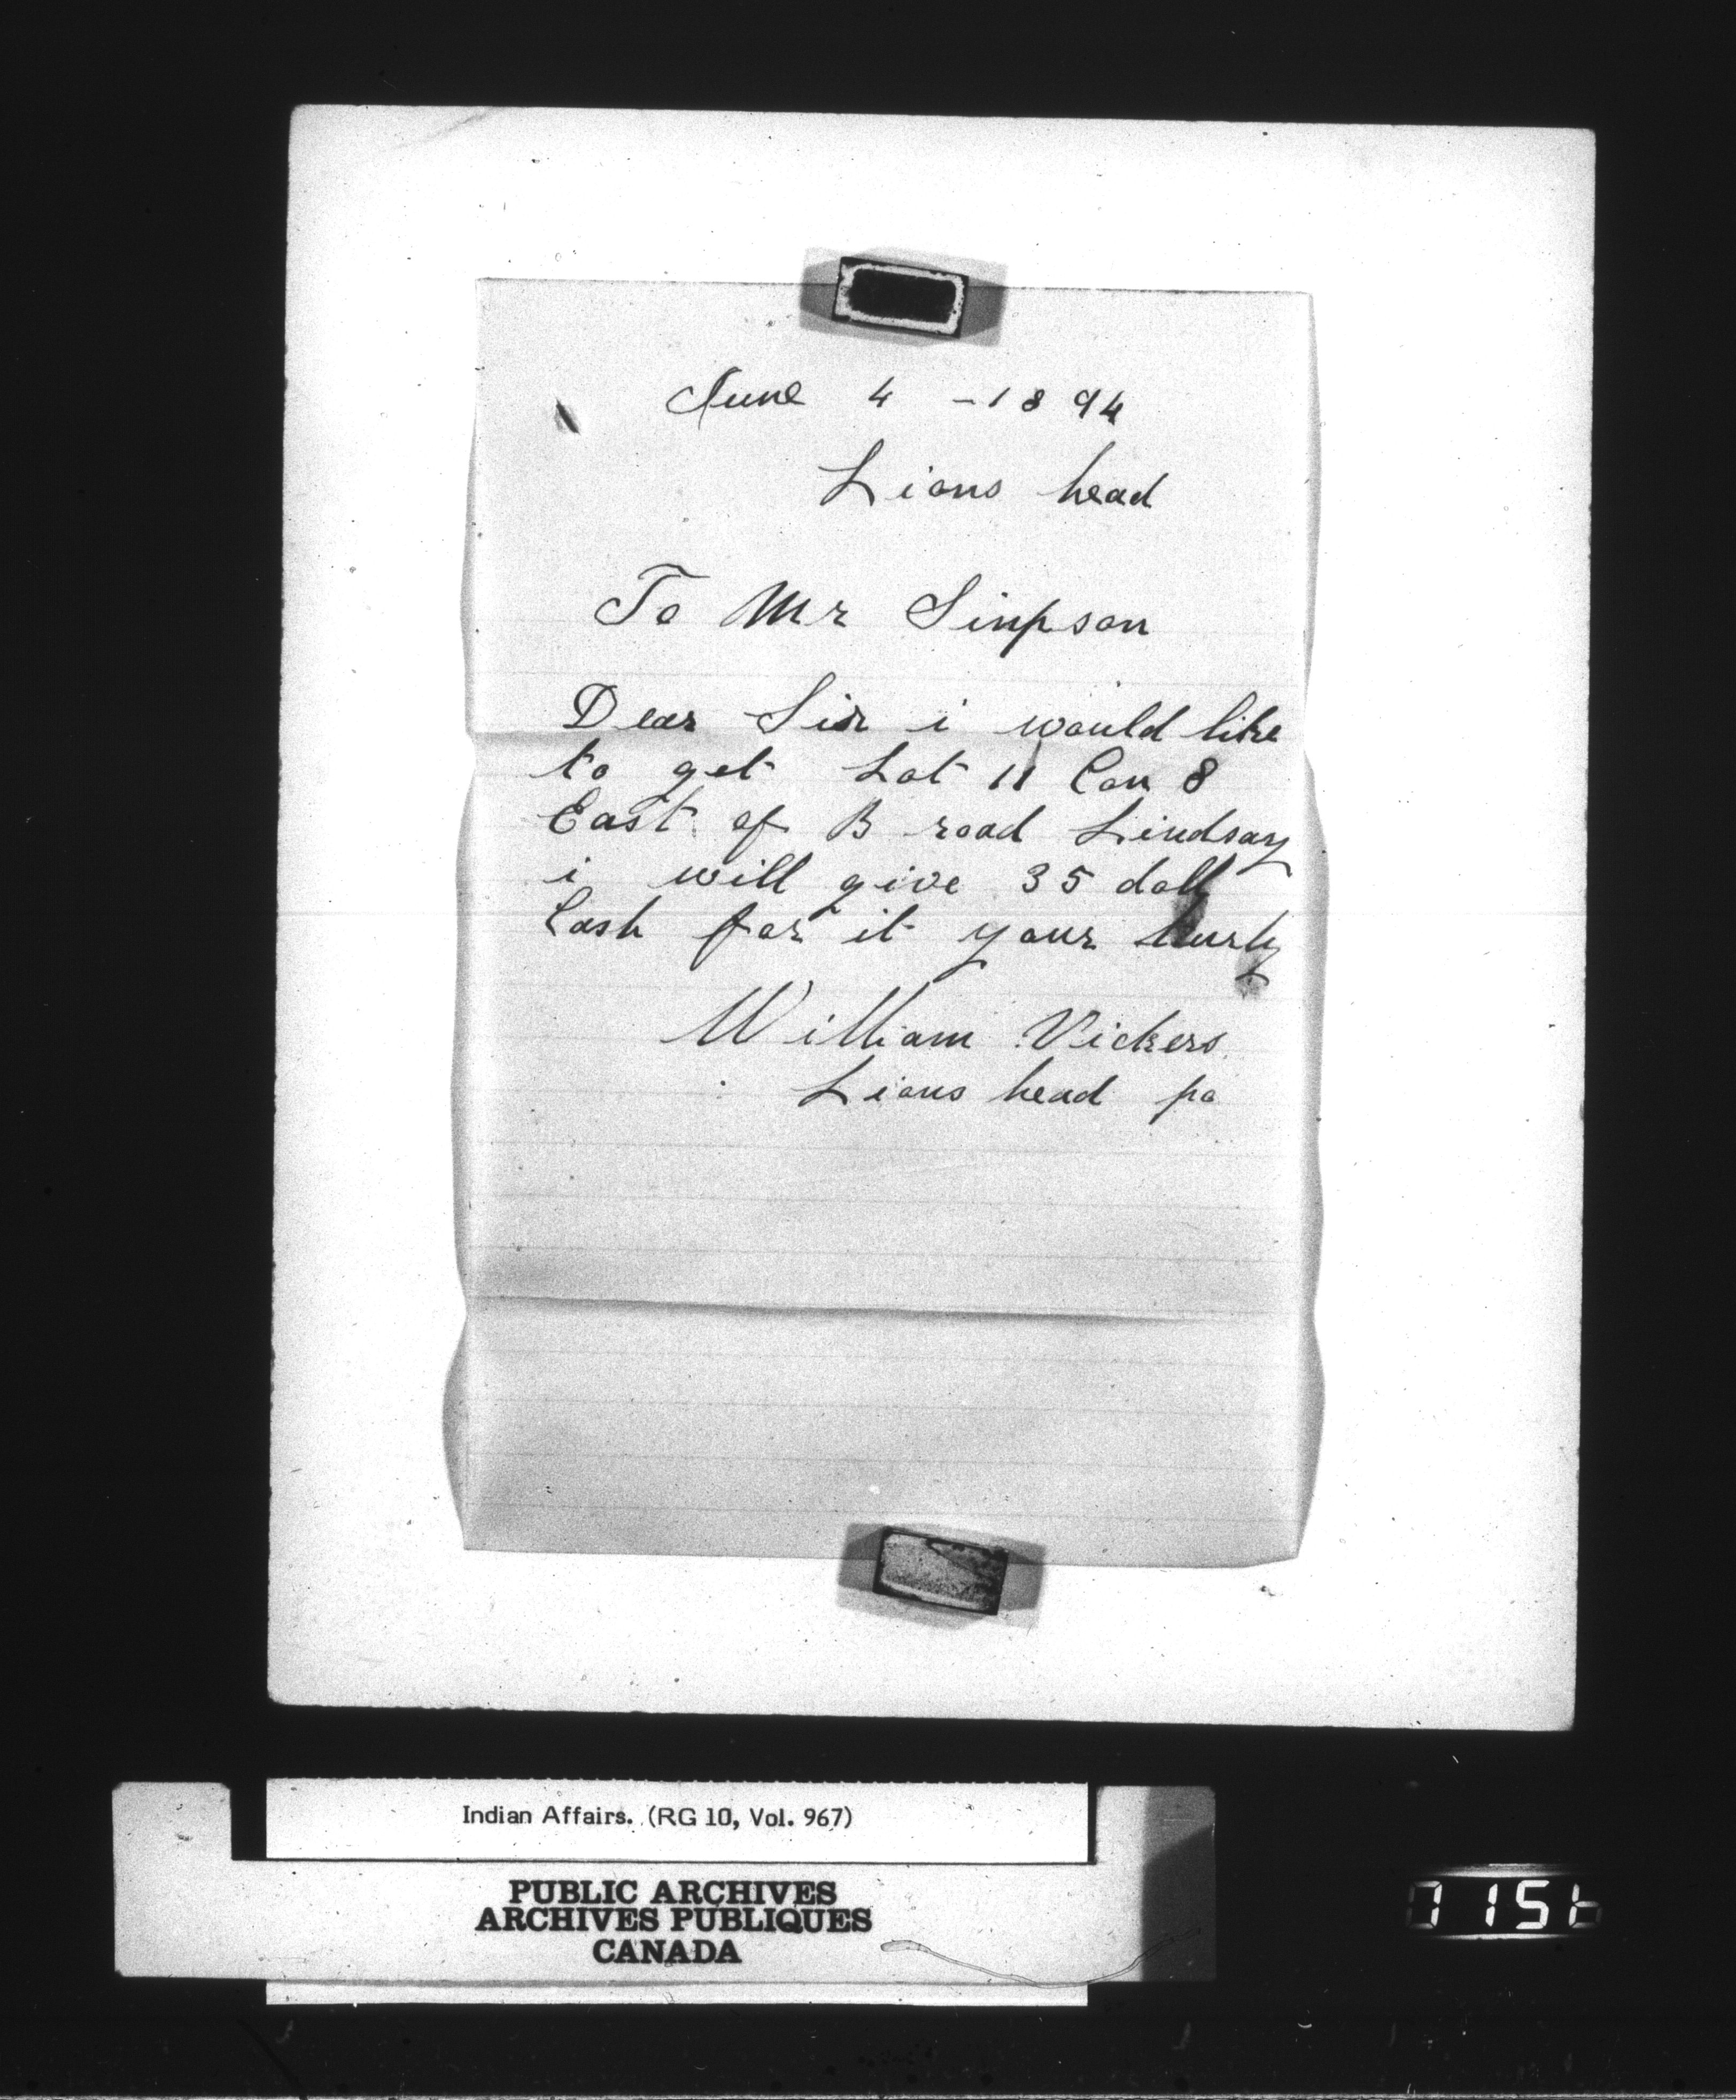 June 4 - 1894
Lions head
To Mr Sinpson
Dear Sir i would like
to get Lot 11 Con 8
East of B road Lindsay
i will give 35 doll
Cash for it your
William Vickers
Lions head po
Indian Affairs. (RG 10, Vol. 967)
PUBLIC ARCHIVES
ARCHIVES PUBLIQUES
CANADA